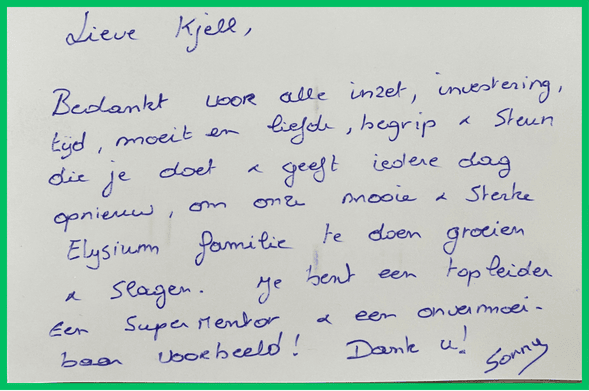 Lieve Kjell,
Bedankt voor alle inzet, investering,
tijd, moeit en liefde, begrip & steun
die je doet & geeft iedere dag
opnieuw, om onze mooie & sterke
Elysium familie te doen groeien
& slagen. Je bent een topleider
Een Super Mentor & een onvermoei-
baar voorbeeld! Dank u! Sonny